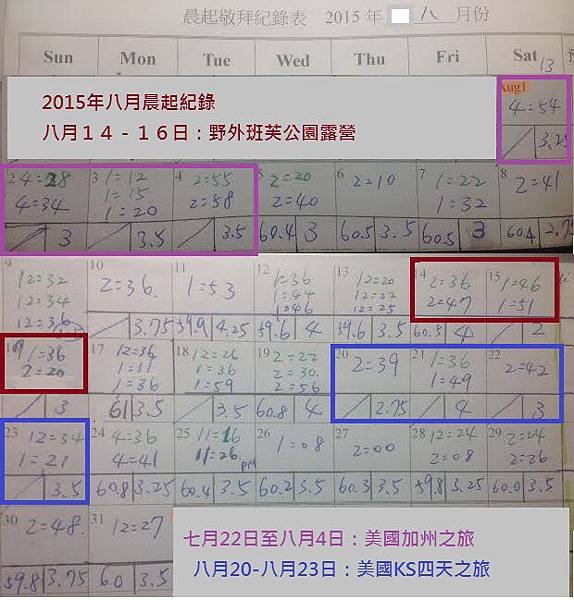 晨起敬拜紀錄表 2015 年 /八 月份
Sun Mon Tue Wed Thu Fri Sat 13
2015年八月晨起紀錄
八月１４－１６日：野外班芙公園露營
Aug1
4=54
3.25
2 4=28 3 1=12 4 2=55 5 2=20 6 2=10 7 1=22 8 2=41
4=34 1=15 2=58 2=40 1=32
1=20
3 3.5 3.5 60.4 3 60.5 3.5 60.5 3 60.4 2.75
9 10 11 12 13 14 15
12=32 2=36. 1=53 1=36 12=20 2=36 1=46
12=34 1=44 12=22 2=47 1=51
12=36 1=46 12=25
3.75 59.9 4.25 59.6 4 59.6 3.5 60.5 4 2
1=36 17 12=36 18 12=26 19 2=22 20 2=39 21 1=36 22 2=42
2=20 1=11 1=36 2=30 1=49
1=36 1=59 2=56
3 61 3.5 3.5 60.8 4 2.75 4 3
23 12=34 24 4=36 25 11=16 26 1=08 27 2=00 28 12=24 29 2=24
1=21 4=41 11=26 PM 2=08 2=26
3.5 60.8 3.25 60.4 3.5 60.2 3.5 60.3 3.5 59.8 3.25 60.0 3.5
30 2=48. 31 12=27
59.8 3.75 60 3.5
七月22日至八月4日：美國加州之旅
八月20-八月23日：美國KS四天之旅